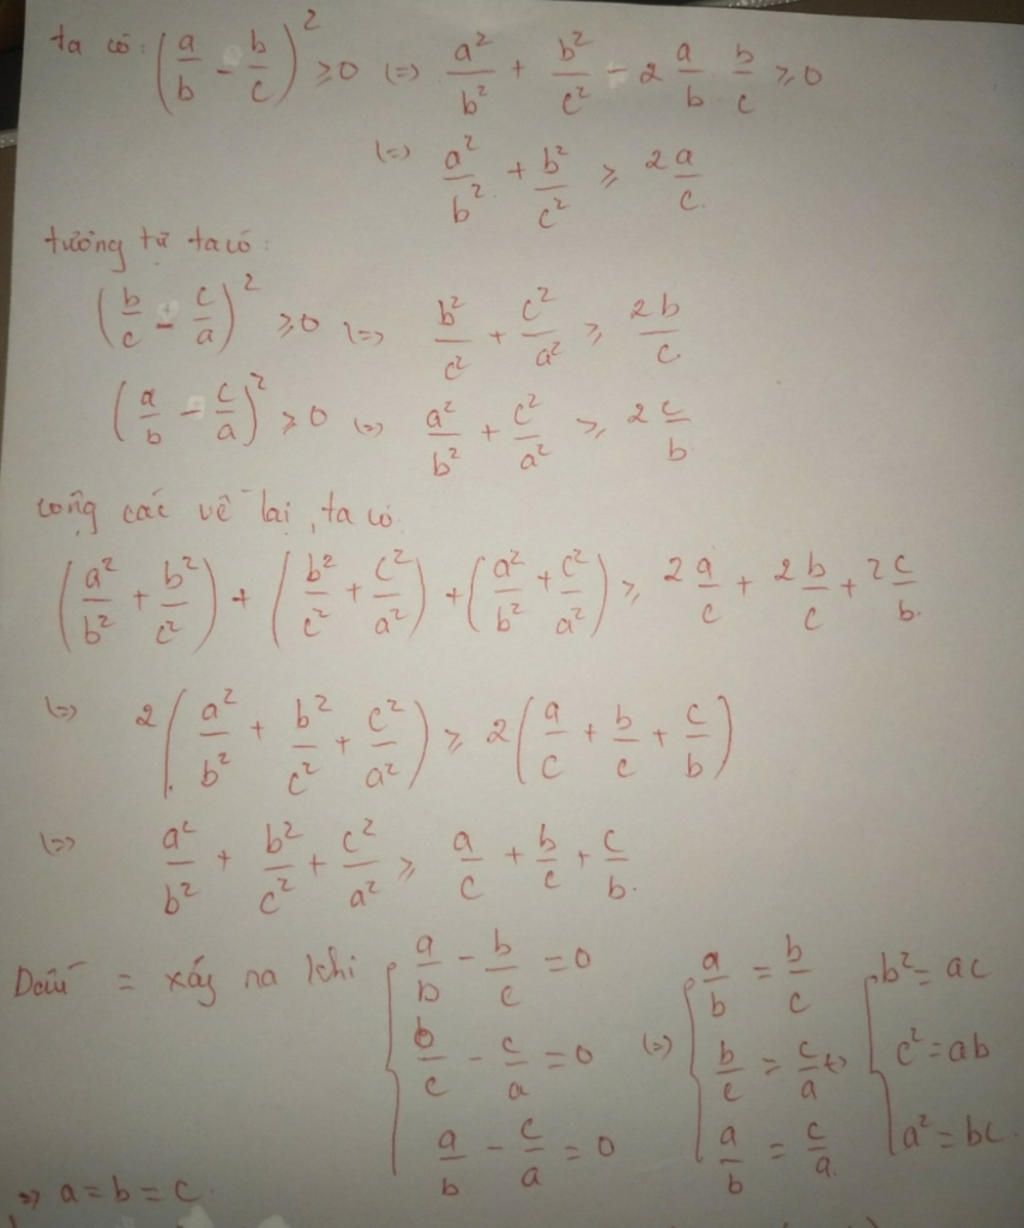 ta có: (a/b - b/c)² ≥ 0 (=) a²/b² + b²/c² - 2 a/b b/c ≥ 0
(=) a²/b² + b²/c² ≥ 2a/c.
tương tự ta có:
(b/c - c/a)² ≥ 0 (=) b²/c² + c²/a² ≥ 2b/c
(a/b - c/a)² ≥ 0 (=) a²/b² + c²/a² ≥ 2 c/b
cộng các vế lại, ta có.
(a²/b² + b²/c²) + (b²/c² + c²/a²) + (a²/b² + c²/a²) ≥ 2 a/c + 2 b/c + 2 c/b.
(=) 2(a²/b² + b²/c² + c²/a²) ≥ 2(a/c + b/c + c/b)
(=) a²/b² + b²/c² + c²/a² ≥ a/c + b/c + c/b.
Dấu = xảy ra khi { a/b - b/c = 0 (=) { a/b = b/c { b² = ac
b/c - c/a = 0 b/c = c/a (=) c² = ab
a/b - c/a = 0 a/b = c/a. a² = bc.
=> a = b = c.